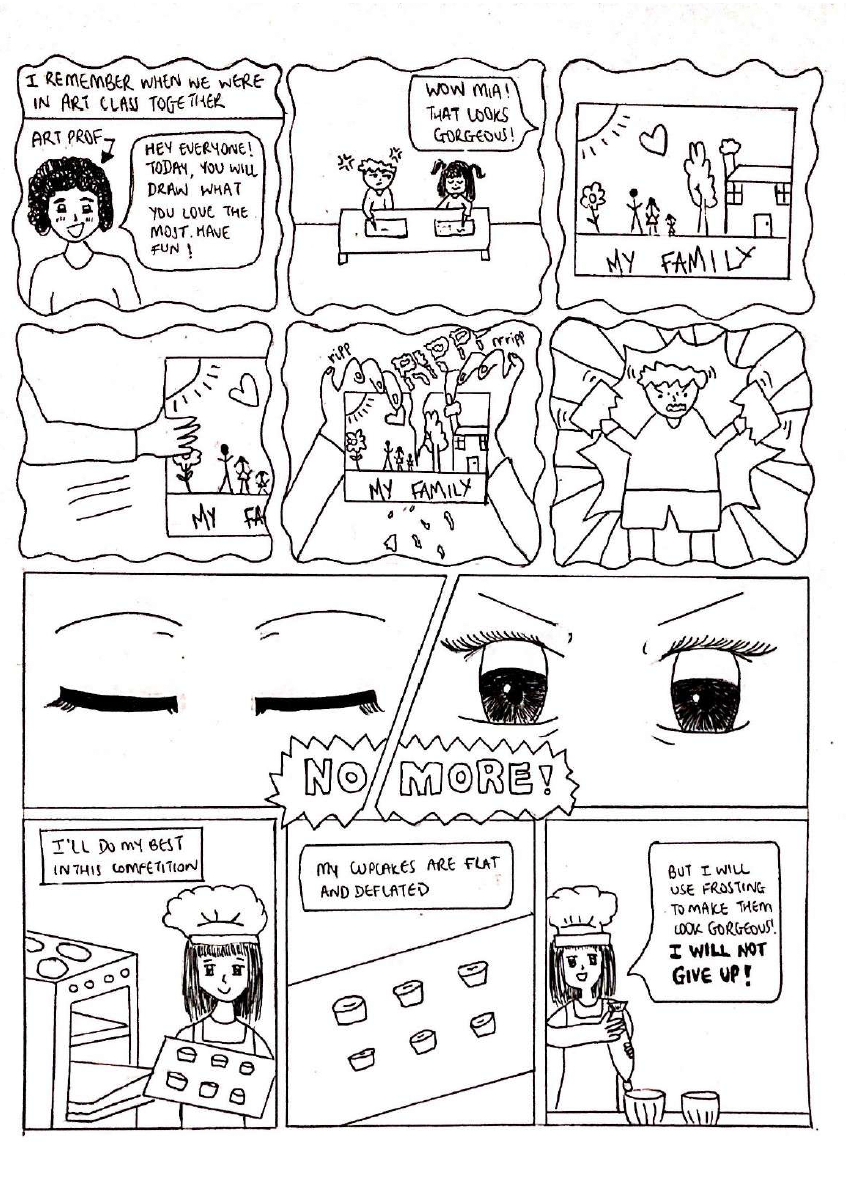 I REMEMBER WHEN WE WERE
IN ART CLASS TOGETHER
ART PROF
HEY EVERYONE!
TODAY, YOU WILL
DRAW WHAT
YOU LOVE THE
MOST. HAVE
FUN!
WOW MIA!
THAT LOOKS
GORGEOUS!
MY FAMILY
MY FA
ripp
RIPP
rrripp
MY FAMILY
NO MORE!
I'LL DO MY BEST
IN THIS COMPETITION
MY CUPCAKES ARE FLAT
AND DEFLATED
BUT I WILL
USE FROSTING
TO MAKE THEM
LOOK GORGEOUS!
I WILL NOT
GIVE UP!